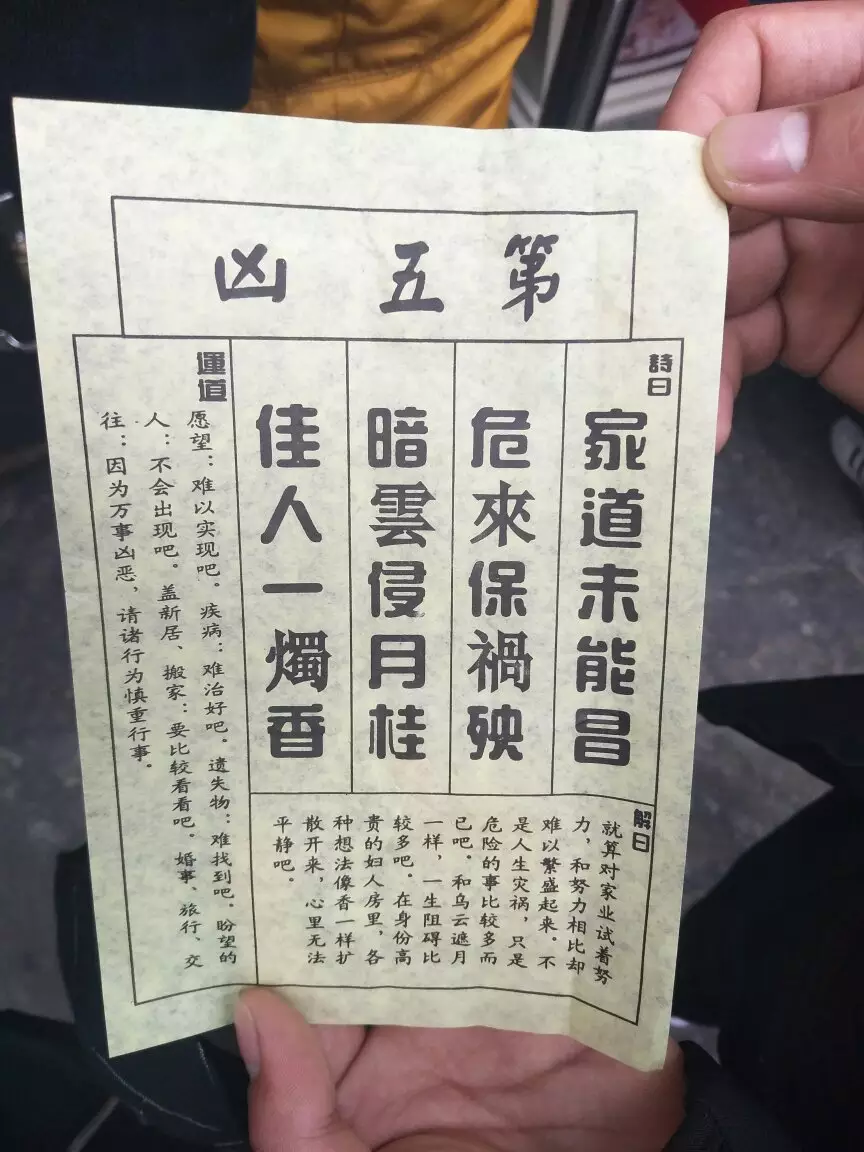 第五凶
詩曰
家道未能昌
危來保禍殃
暗雲侵月桂
佳人一燭香
解曰
就算对家业试着努
力，和努力相比却
难以繁盛起来。不
是人生灾祸，只是
危险的事比较多而
已吧。和乌云遮月
一样，一生阻碍比
较多吧。在身份高
贵的妇人房里，各
种想法像香一样扩
散开来，心里无法
平静吧。
運道
愿望：难以实现吧。疾病：难治好吧。遗失物：难找到吧。盼望的
人：不会出现吧。盖新居、搬家：要比较看看吧。婚事、旅行、交
往：因为万事凶恶，请诸行为慎重行事。